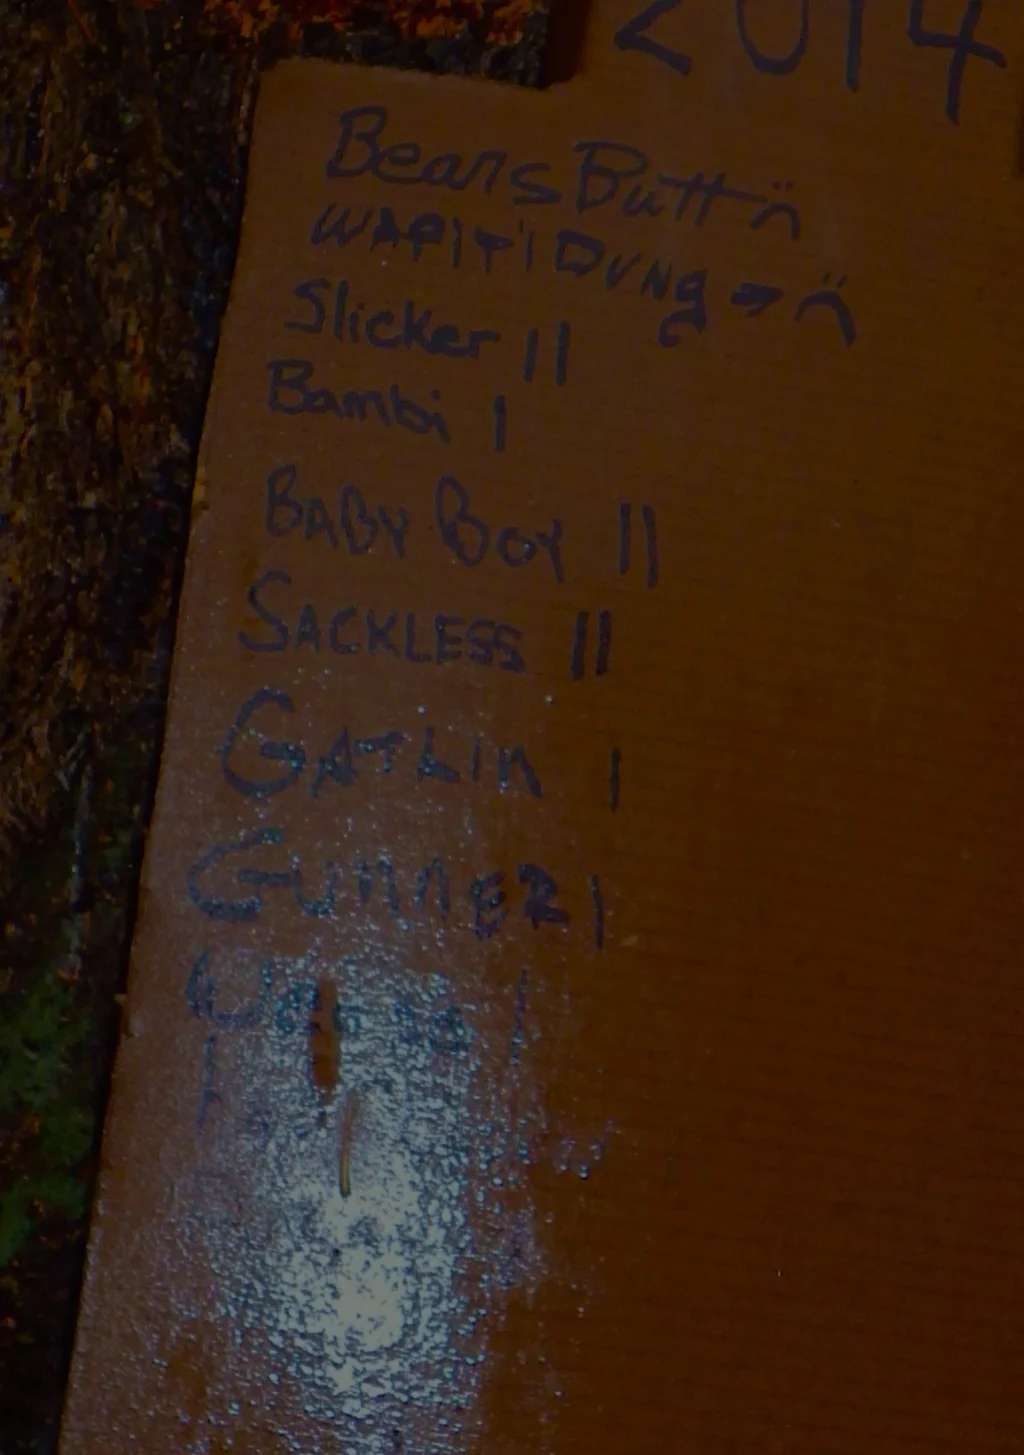 2014
Bears Butt
WAPITI DUNg →
Slicker ||
Bambi |
BABY BOY ||
SACKLESS ||
GATLIN |
GUNNER |